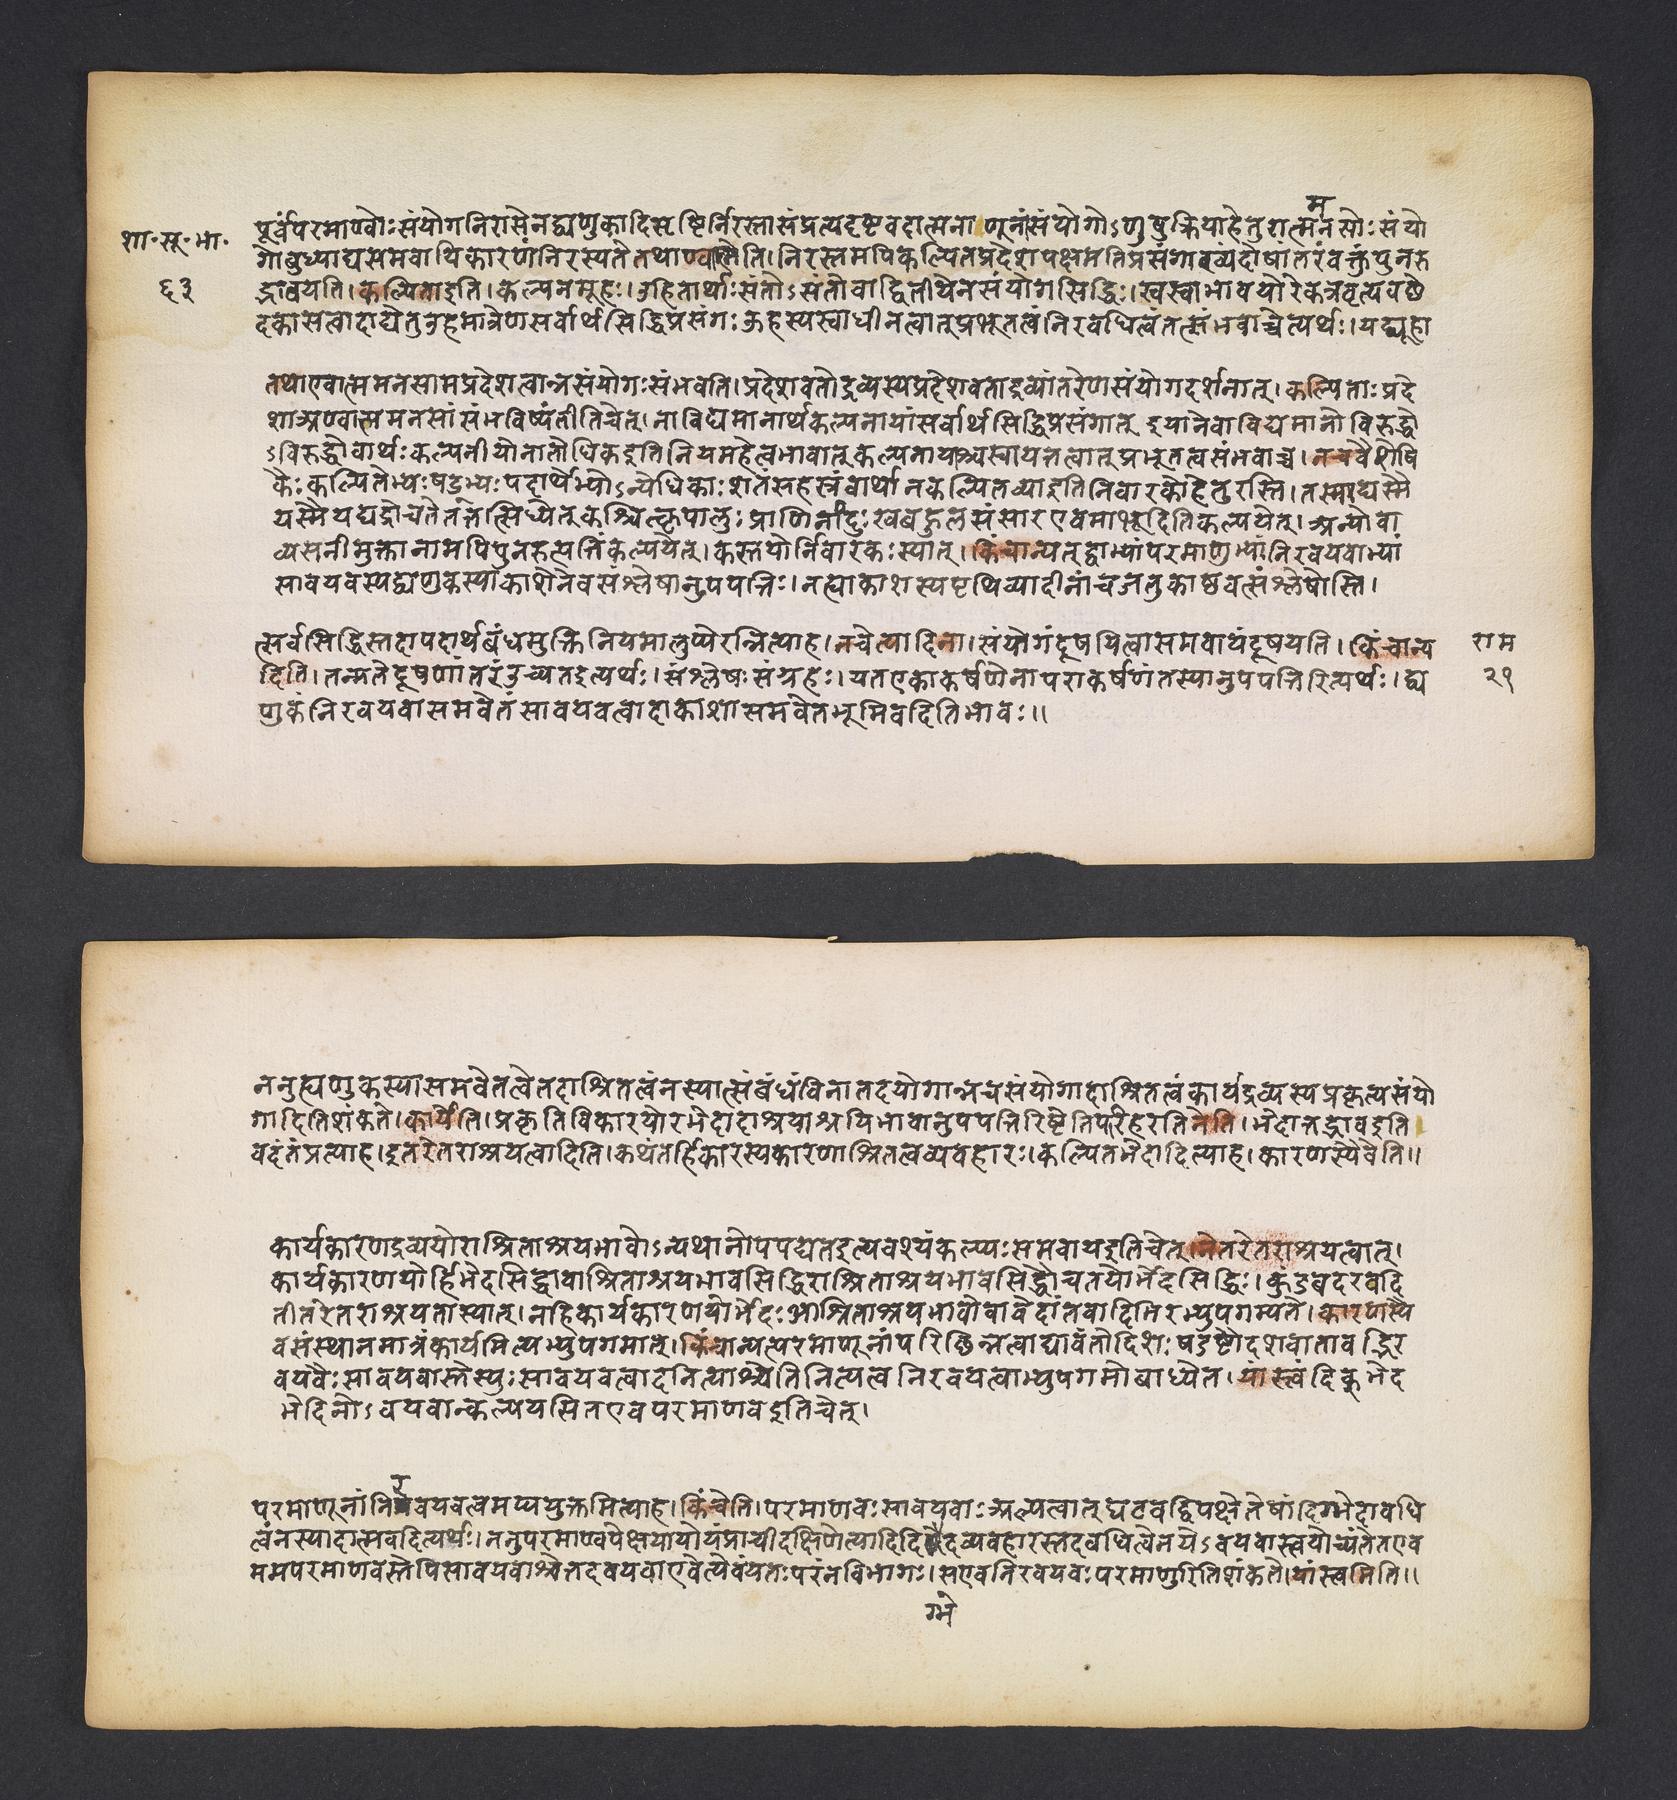 म
शा॰सू॰भा॰
६३
पूर्वंपरमाण्वोःसंयोगनिरासेनद्व्यणुकादिसृष्टिर्निरस्तासंप्रत्यदृष्टवदात्मनाणूनांसंयोगोऽणुषुक्रियाहेतुरात्मनसोःसंयो
गोबुध्याद्यसमवायिकारणंनिरस्यतेतथाण्वात्मेति।निरस्तमपिकल्पितप्रदेशपक्षमतिप्रसंगाख्यंदोषांतरंवक्तुंपुनरु
द्भावयति।कल्पिताइति।कल्पनमूहः।उहितार्थाःसंतोऽसंतोवाद्वितीयेनसंयोगसिद्धिः।स्वस्वाभावयोरेकत्रवृत्यवछे
दकासत्वादाद्येतुउहमात्रेणसर्वार्थसिद्धिप्रसंगःऊहस्यस्वाधीनत्वात्प्रभूतत्वंनिरवधित्वंतत्संभवाच्चेत्यर्थः।यद्यूहा
तथाएवात्ममनसामप्रदेशत्वान्नसंयोगःसंभवति।प्रदेशवतोद्रव्यस्यप्रदेशवताद्रव्यांतरेणसंयोगदर्शनात्।कल्पिताःप्रदे
शाअण्वात्ममनसांसंभविष्यंतीतिचेत्।नाविद्यमानार्थकल्पनायांसर्वार्थसिद्धिप्रसंगात् इयानेवाविद्यमानोविरुद्धो
ऽविरुद्धोवार्थःकल्पनीयोनातोधिकइतिनियमहेत्वभावात्कल्पनायाश्चस्वायत्तत्वात्प्रभूतत्वसंभवाच्च।नचवैशेषि
कैःकल्पितेभ्यःषड्भ्यःपदार्थेभ्योऽन्येधिकाःशतंसहस्रंवार्थानकल्पितव्याइतिनिवारकोहेतुरस्ति।तस्माद्यस्मै
यस्मैयद्यद्रोचतेतत्तत्सिध्येत्कश्चित्कृपालुःप्राणिनांदुःखबहुलसंसारएवमाभूदितिकल्पयेत्।अन्योवा
व्यसनीमुक्तानामपिपुनरुत्पत्तिंकल्पयेत्।कस्तयोर्निवारकःस्यात्।किंचान्यत्द्वाभ्यांपरमाणुभ्यांनिरवयवाभ्यां
सावयवस्यद्व्यणुकस्याकाशेनेवसंश्लेषानुपपत्तिः।नह्याकाशस्यपृथिव्यादीनांचजतुकाष्ठवत्संश्लेषोस्ति।
त्सर्वसिद्धिस्तदापदार्थबंधमुक्तिनियमालुप्येरन्नित्याह।नचेत्यादिना।संयोगंदूषयित्वासमवायंदूषयति।किंचान्य
दिति।तन्मतेदूषणांतरंउच्यतइत्यर्थः।संश्लेषःसंग्रहः।यतएकाकर्षणेनापराकर्षणंतस्यानुपपत्तिरित्यर्थः।द्व्य
णुकंनिरवयवासमवेतंसावयवत्वादाकाशासमवेतभूमिवदितिभावः॥
राम
२१
ननुद्व्यणुकस्यासमवेतत्वेतदाश्रितत्वंनस्यात्संबंधंविनातदयोगान्नचसंयोगादाश्रितत्वंकार्यद्रव्यस्यप्रकृत्यसंयो
गादितिशंकते।कार्येति।प्रकृतिविकारयोरभेदादाश्रयाश्रयिभावानुपपत्तिरिष्टेतिपरिहरतिनेति।भेदात्तद्भावइति
वदंतंप्रत्याह।इतरेतराश्रयत्वादिति।कथंतर्हिकार्स्यकारणाश्रितत्वव्यवहारः।कल्पितभेदादित्याह।कारणस्यैवेति॥
कार्यकारणद्रव्ययोराश्रिताश्रयभावोऽन्यथानोपपद्यतइत्यवश्यंकल्प्यःसमवायइतिचेत्।नेतरेतराश्रयत्वात्।
कार्यकारणयोर्हिभेदसिद्धावाश्रिताश्रयभावसिद्धिराश्रिताश्रयभावसिद्धौचतयोर्भेदसिद्धिः।कुंडबदरवदि
तीतरेतराश्रयतास्यात्।नहिकार्यकारणयोर्भेदःआश्रिताश्रयभावोवावेदांतवादिभिरभ्युपगम्यते।कारणस्यै
वसंस्थानमात्रंकार्यमित्यभ्युपगमात्।किंचान्यत्परमाणूनांपरिछिन्नत्वाद्यावंतोदिशःषडष्टौदशवातावद्भिर
वयवैःसावयवास्तेस्युःसावयवत्वादनित्याश्चेतिनित्यत्वनिरवयत्वाभ्युपगमोबाध्येत।यांस्त्वंदिक्भेद
भेदिनोऽवयवान्कल्पयसितएवपरमाणवइतिचेत्।
र
परमाणूनांनिरवयवत्वमप्ययुक्तमित्याह।किंचेति।परमाणवःसावयवाःअल्पत्वात्घटवद्विपक्षेतेषांदिग्भेदावधि
त्वंनस्यादात्मवदित्यर्थः।ननुपरमाण्वपेक्षयायोयंप्राचीदक्षिणेत्यादिदिदव्यवहारस्तदवधित्वेनयेऽवयवास्त्वयोच्यंतेतएव
ममपरमाणवस्तेपिसावयवाश्चेत्तदवयवाएवेत्येवंयतःपरंनविभागः।सएवनिरवयवःपरमाणुरितिशंकते।यांस्त्वमिति॥
ग्भे